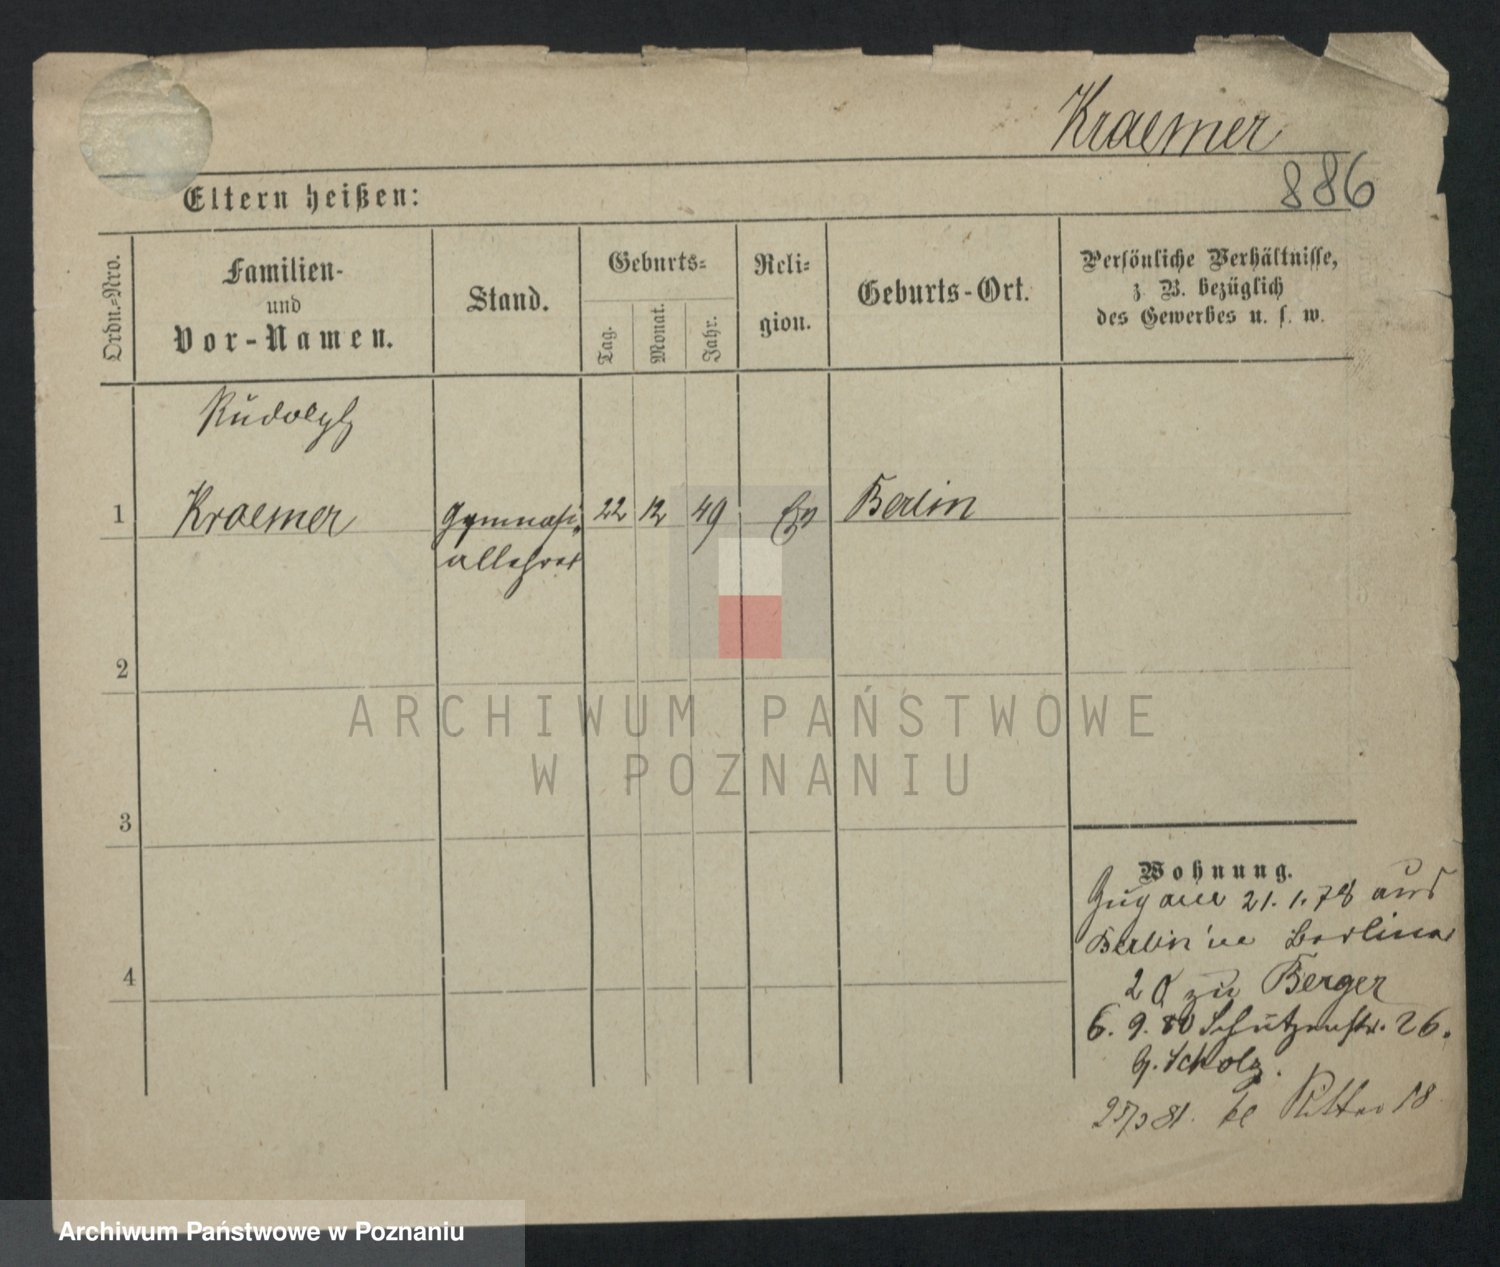 Kraemer
886
Eltern heißen:
Ordn.-Nro.
Familien-
und
Vor-Namen.
Stand.
Geburts-
Tag.
Monat.
Jahr.
Reli-
gion.
Geburts-Ort.
Persönliche Verhältnisse,
z. B. bezüglich
des Gewerbes u. s. w.
Rudolph
1 Kraemer Gymnasi- 22 12 49 Ev Berlin
allehrer
2
3
4
Wohnung.
21.1.78 aus
Berlin Berliner
2 zu Berger
6. 9. 80 Schützenstr. 26.
Scholz.
81. Ritter 18
ARCHIWUM PAŃSTWOWE
W POZNANIU
Archiwum Państwowe w Poznaniu